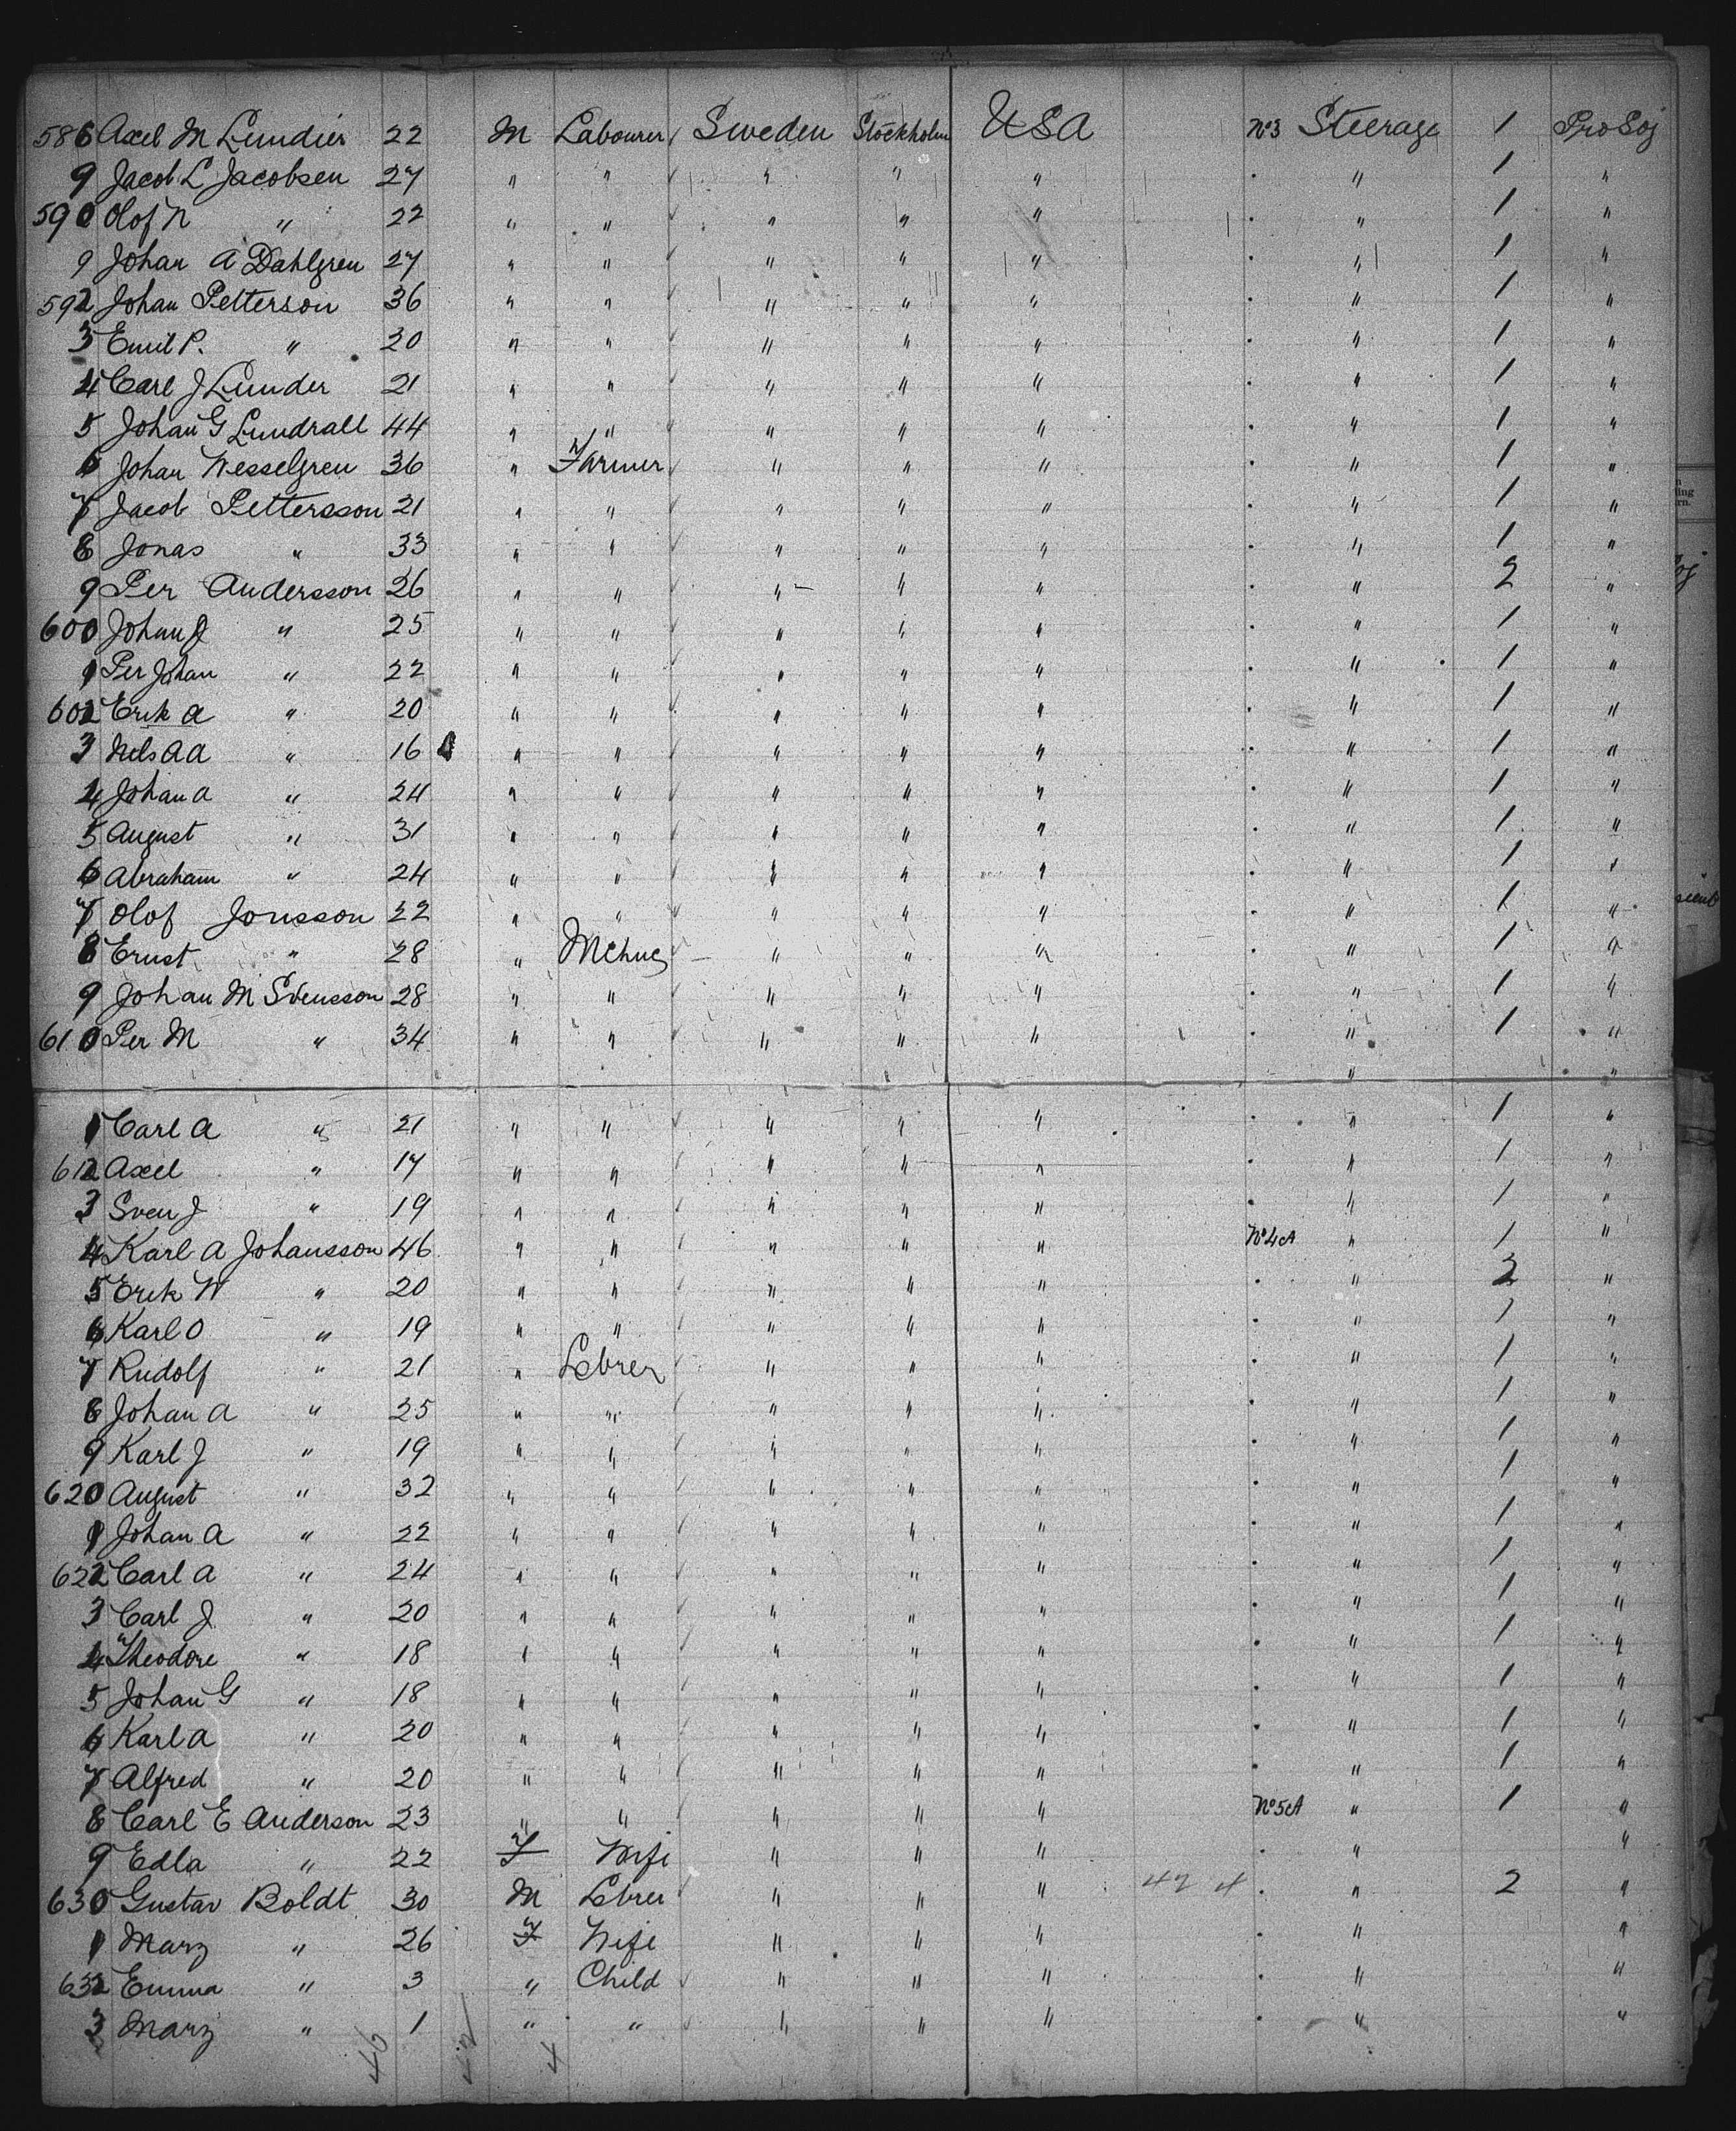 586 Axel M Lundier 22 M Labourer Sweden Stockholm USA No3 Steerage 1 ProSoj
9 Jacob L Jacobsen 27 " " " " " " 1 "
590 Olof N " 22 " " " " " " 1 "
9 Johan A Dahlgren 27 " " " " " " 1 "
592 Johan Petterson 36 " " " " " " 1 "
3 Emil P. " 20 " " " " " " 1 "
4 Carl J Lunder 21 " " " " " " 1 "
5 Johan G Lundrall 44 " " " " " " 1 "
6 Johan Wesselgren 36 " Farmer " " " " 1 "
7 Jacob Pettersson 21 " " " " " " 1 "
8 Jonas " 33 " " " " " " 1 "
9 Per Andersson 26 " " " " " " 2 "
600 Johan J " 25 " " " " " " 1 "
1 Per Johan " 22 " " " " " " 1 "
602 Erik A " 20 " " " " " " 1 "
3 Nels A A " 16 " " " " " " 1 "
4 Johan A " 24 " " " " " " 1 "
5 August " 31 " " " " " " 1 "
6 Abraham " 24 " " " " " " 1 "
7 Olof Jonsson 22 " " " " " " 1 "
8 Ernst " 28 " Mchnc " " " " 1 "
9 Johan M Svensson 28 " " " " " " 1 "
610 Per M " 34 " " " " " " 1 "
" "
1 Carl A " 21 " " " " " " 1 "
612 Axel " 17 " " " " " " 1 "
3 Sven J " 19 " " " " " " 1 "
4 Karl A Johansson 46 " " " " " No4A " 1 "
5 Erik W " 20 " " " " " " 2 "
6 Karl O " 19 " " " " " " 1 "
7 Rudolf " 21 " Lebrer " " " " 1 "
8 Johan A " 25 " " " " " " 1 "
9 Karl J " 19 " " " " " " 1 "
620 August " 32 " " " " " " 1 "
1 Johan A " 22 " " " " " " 1 "
622 Carl A " 24 " " " " " " 1 "
3 Carl J " 20 " " " " " " 1 "
4 Theodore " 18 " " " " " " 1 "
5 Johan G " 18 " " " " " " 1 "
6 Karl A " 20 " " " " " " 1 "
7 Alfred " 20 " " " " " " 1 "
8 Carl E Anderson 23 " " " " " No5A " 1 "
9 Edla " 22 F Wife " " " " "
630 Gustav Boldt 30 M Lebrer " " " 42 4 " 2 "
1 Mary " 26 F Wife " " " " "
632 Emma " 3 " Child " " " " "
3 Mary " 1 " " " " " " "
46 42 4